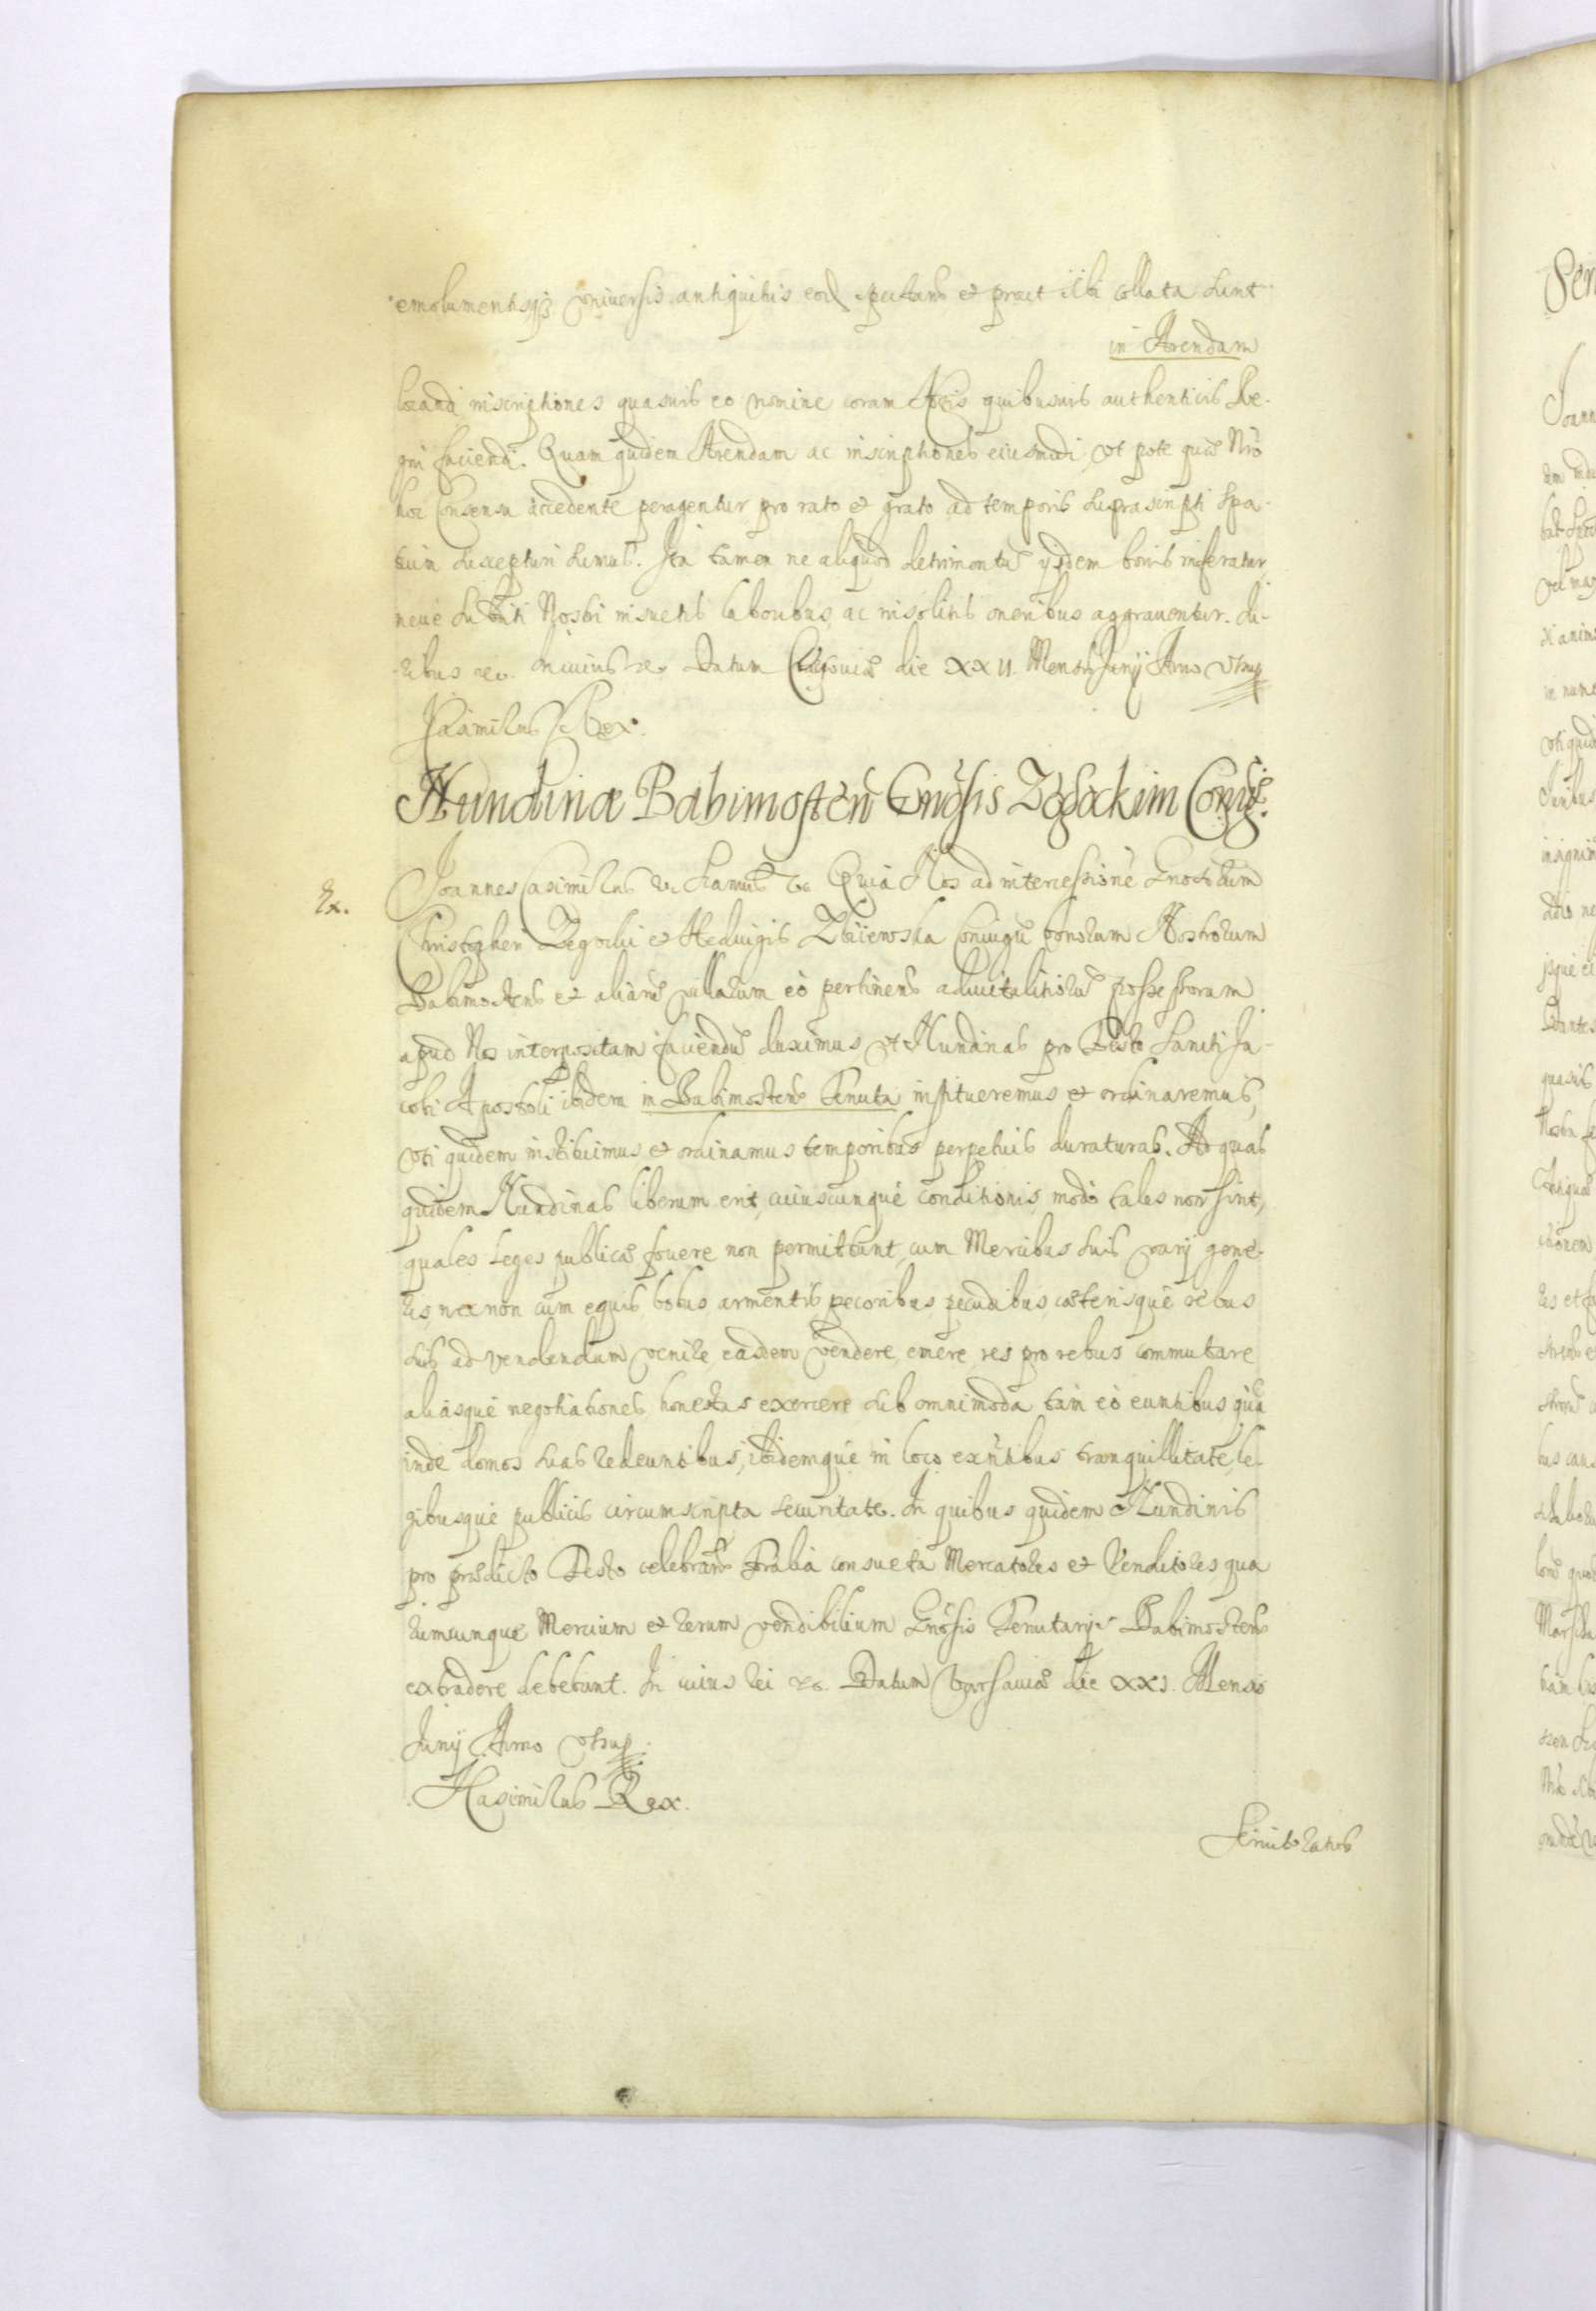 emolumentisq₃ vniuersis antiquitus eod spectan et prout ilbi collata sunt
in Arendam
locandi inscriptiones quasuis eo nomine coram Actis quibusuis authenticis Re-
gni faciendi. Quam quidem Arendam ac inscriptiones eiusmodi, vt pote quæ Nro
hoc Consensu accedente peragentur pro rato et grato ad temporis suprascripti spa-
tium suscepturi sumus. Ita tamen ne aliquod detrimentũ ijsdem bonis inferatur
neue subditi Nostri insuetis laboribus, ac insolitis oneribus aggrauentur. Iu-
ribus &c. In cuius &c. Datum die XXII. Mensis Junij Anno vtsup
Kasimirus Rex.
Nundinæ Babimosten Gnõsis Zegockim Coniug.
Ex.
Joannes Casimirus &c. &c. Quia Nos ad intercessionẽ Gnosorum
Christopheri Zegocki et Heduigis Zbijewska Coniugũ bonorum Nostrorum
Babimostens et aliarũ villarum eò pertinens aduitalitiorũ possessorum
apud Nos interpositam faciendũ duximus, vt Nundinas pro Festo Sancti Ja-
cobi Apostoli ibidem in Babimostens Tenuta institueremus et ordinaremus,
vti quidem instituimus et ordinamus temporibus perpetuis duraturas. Ad quas
quidem Nundinas liberum erit, cuiuscunque conditionis, modo tales non sint,
quales Leges publicæ fouere non permittunt, cum Mercibus suis varij gene-
ris, nec non cum equis, bobus, armentis, pecoribus, pecudibus, cæterisque rebus
suis ad vendendum venire, easdem vendere, emere, res pro rebus commutare
aliasque negotiationes honestas exercere sub omnimoda tàm eò euntibus quà
inde domos suas redeuntibus, ibidemque in loco exñtibus tranquillitate, le-
gibusque publicis circumscripta securitate. In quibus quidem Nundinis
pro prædicto Festo celebran foralia consueta Mercatores et Venditores qua
rumcunque Mercium et rerum vendibilium Gnõsis Tenutarijs Babimostens
extradere debebunt. In cuius rei &c. Datum Varsauiæ die XXI. Mensis
Junij Anno vtsup.
Kasimirus Rex.